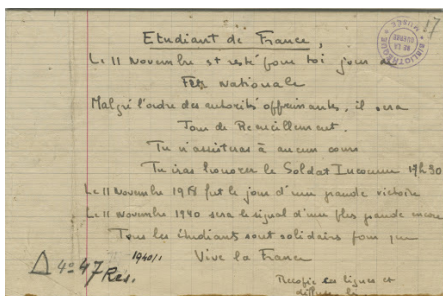 Etudiant de France,
Le 11 Novembre est resté pour toi jour de
Fête Nationale
Malgré l'ordre des autorités opprimantes, il sera
Jour de Recueillement.
Tu n'assisteras à aucun cours
Tu iras honorer le Soldat Inconnu 17h30
Le 11 Novembre 1918 fut le jour d'une grande victoire
Le 11 Novembre 1940 sera le signal d'une plus grande encore
Tous les étudiants sont solidaires pour que
Vive la France
Recopie ces lignes et
diffuse les
Δ 4° 47 Res. 1940/1
BIBLIOTHÈQUE
MUSÉE
17